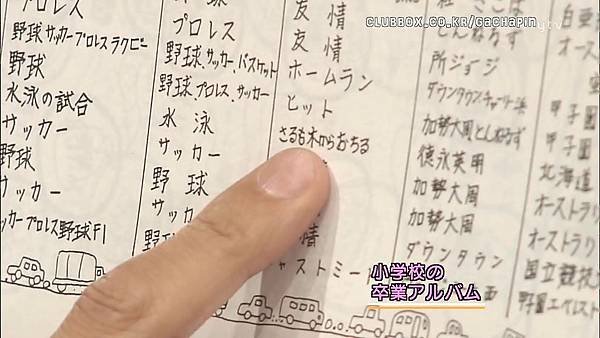 CLUBBOX.CO.KR/GACHAPIN
ytv
プロレス
野球サッカープロレスラグビー
野球
水泳の試合
サッカー
野球
サッカー
カープロレス野球F1
プロレス
野球、サッカー、バスケット
野球、プロレス、サッカー
水泳
サッカー
野球
サッカー
野球
友情
友情
ホームラン
ヒット
さるも木からおちる
情
ャストミー
とんねるず
所ジョージ
加勢大周とんねるず
徳永英明
加勢大周
加勢大周
ダウンタウン
西
白亜
オースト
甲子園
甲子園
北海道
オーストラリ
オーストラリ
国立競技
野園エベレスト
小学校の
卒業アルバム